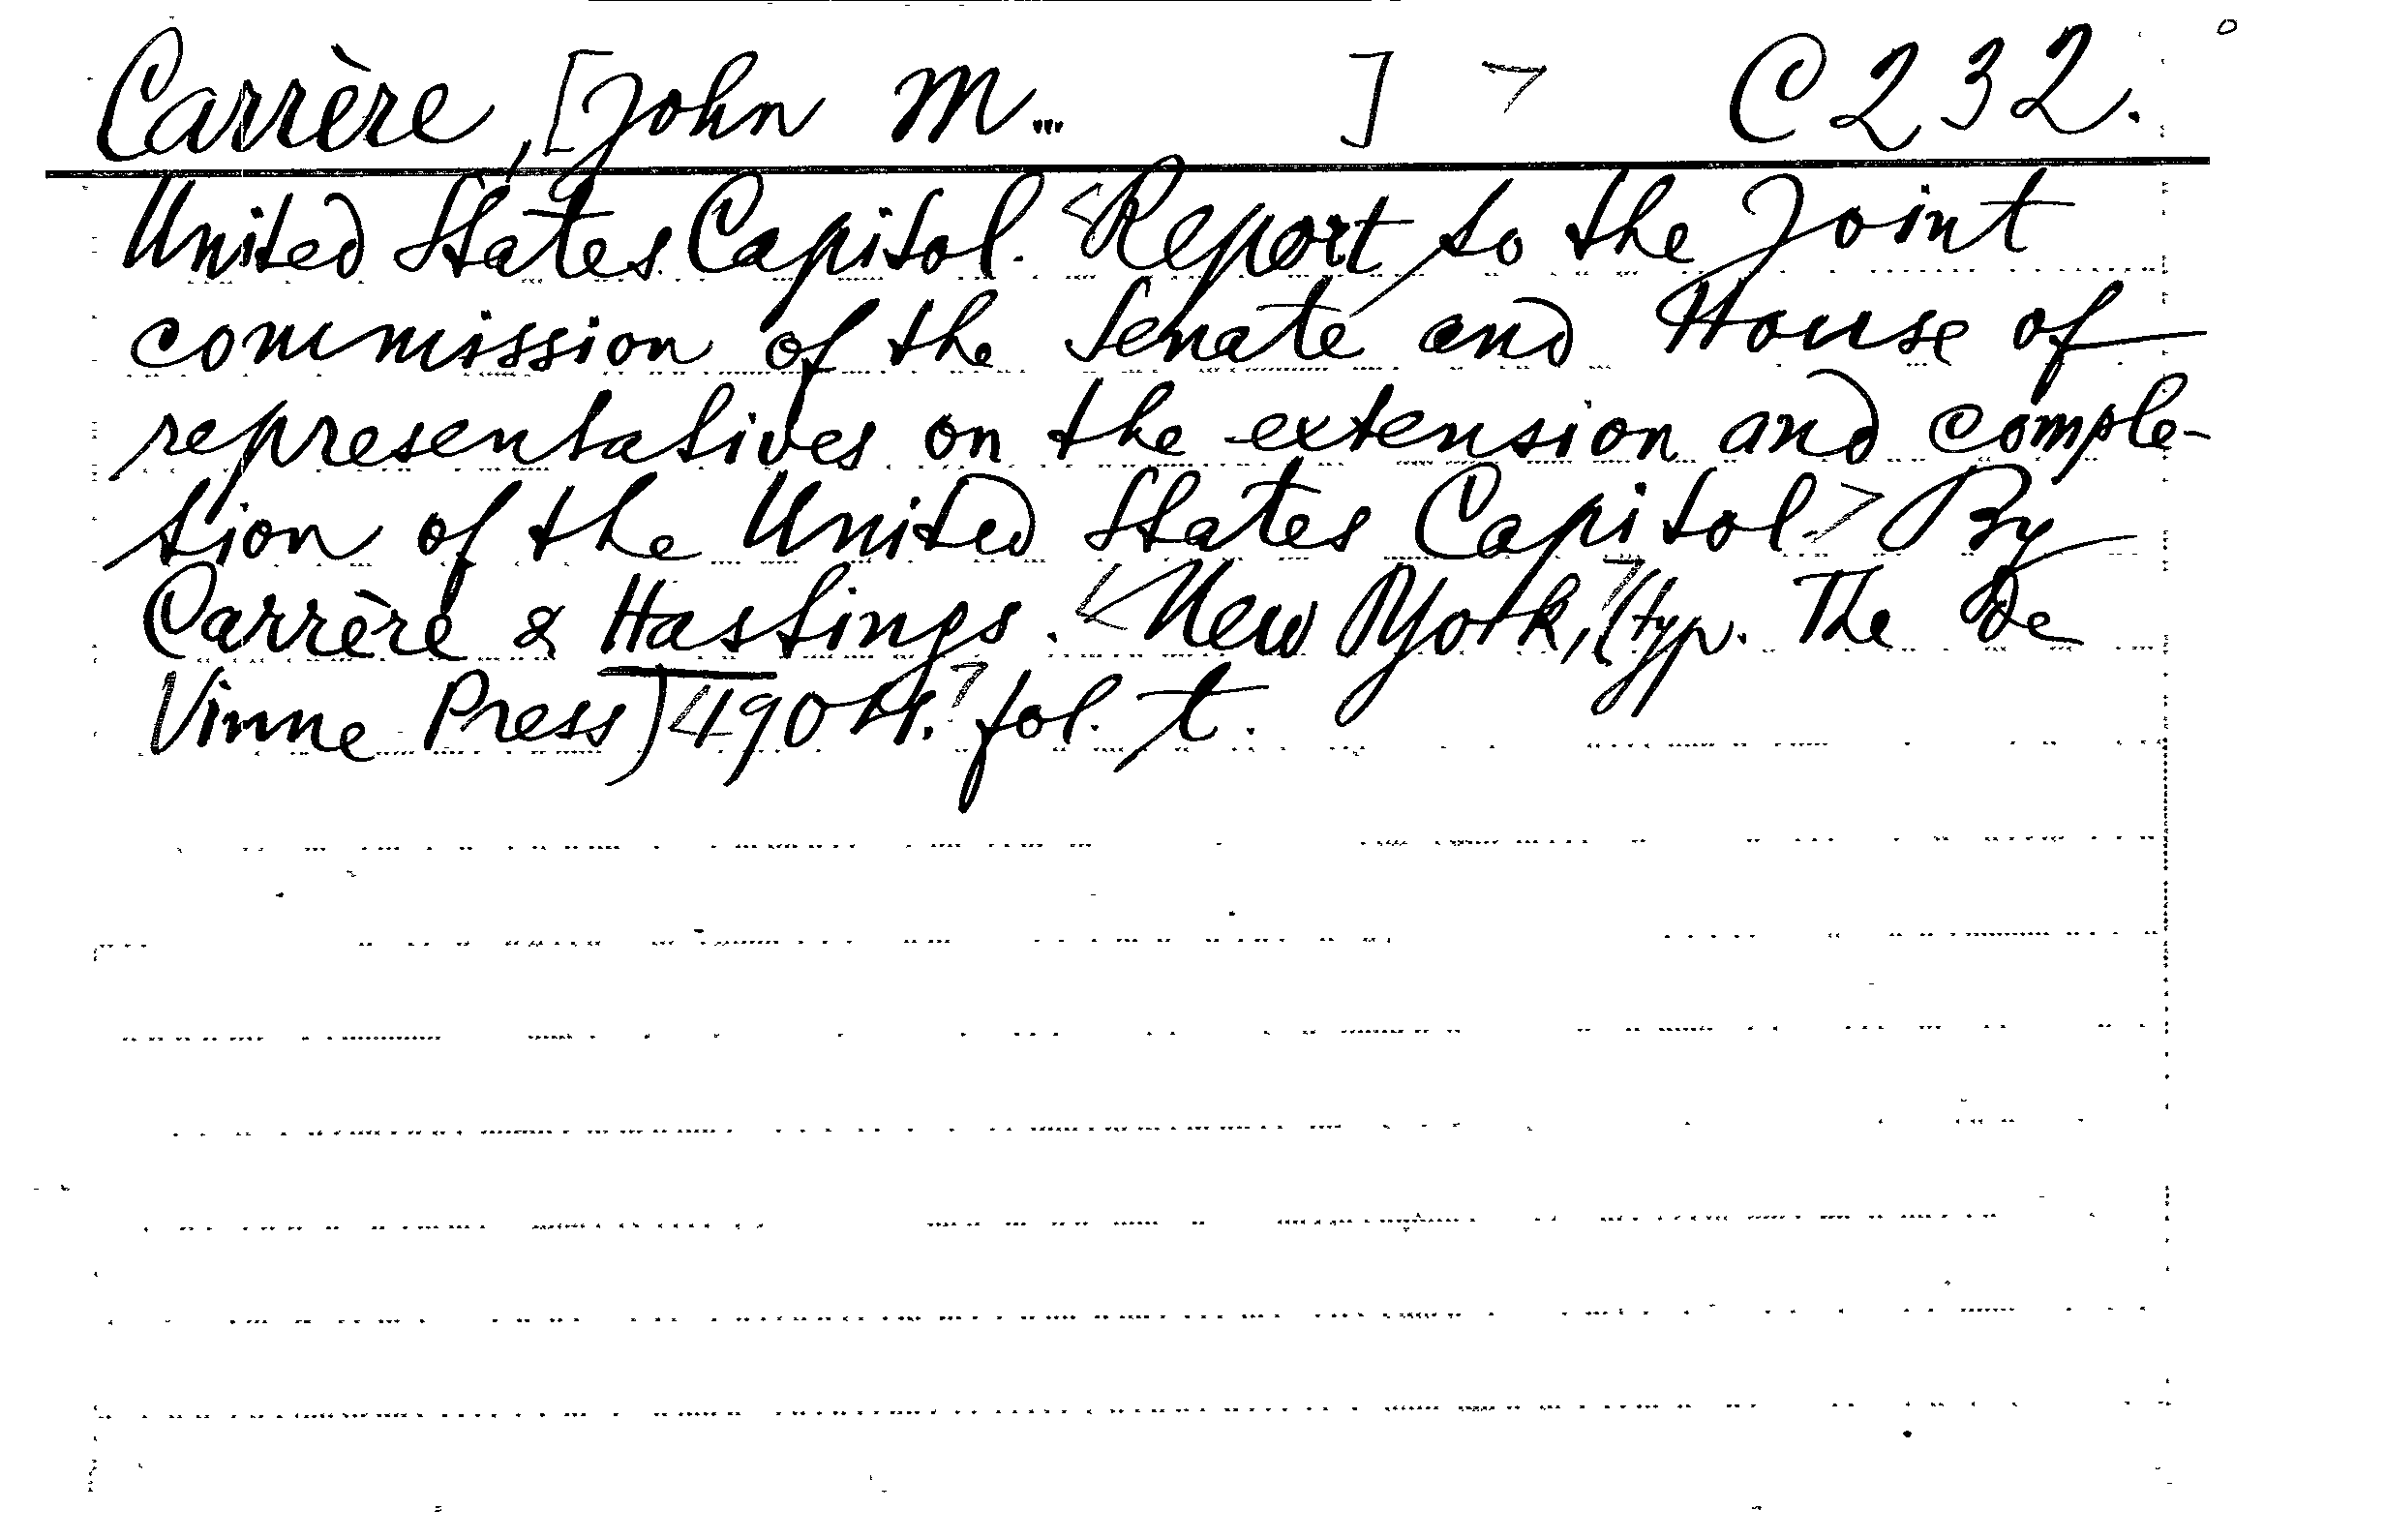 Carrère, [John M... ] > C 232.
United States Capitol. <Report to the Joint
commission of the Senate and House of
representatives on the extension and comple-
tion of the United States Capitol> By
Carrère & Hastings. <New York,> (typ. The De
Vinne Press) <1904.> fol. t.